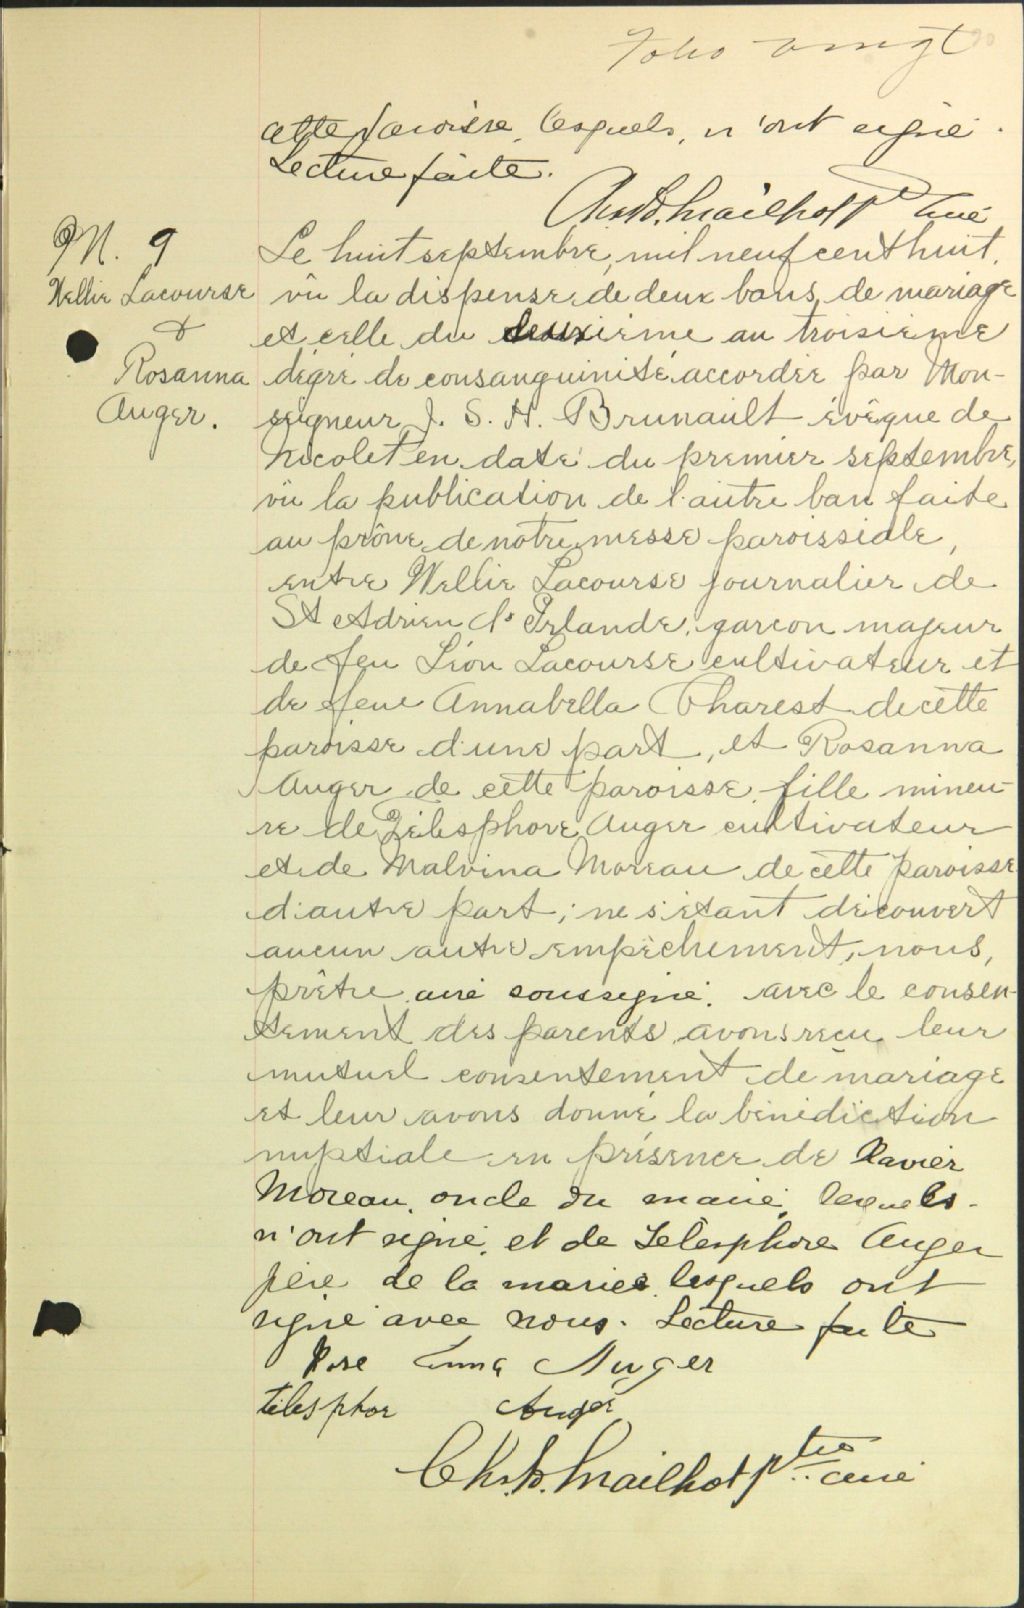 Folio vingt
cette paroisse, lesquels, n'ont signé.
Lecture faite.
Chs. D. Mailhot ptre curé
M. 9
Wellie Lacourse
&
Rosanna
Auger.
Le huit septembre, mil neuf cent huit,
vu la dispense de deux bans de mariage
et celle du deuxième au troisième
dégré de consanguinité accordée par Mon-
seigneur J. S. H. Brunault évêque de
Nicolet en date du premier septembre,
vu la publication de l'autre ban faite
au prône de notre messe paroissiale,
entre Wellie Lacourse journalier de
St Adrien d'Irlande, garçon majeur
de feu Léon Lacourse cultivateur et
de feue Annabella Charest de cette
paroisse d'une part, et Rosanna
Auger de cette paroisse fille mineu-
re de Télesphore Auger cultivateur
et de Malvina Moreau de cette paroisse
d'autre part; ne s'étant découvert
aucun autre empêchement, nous,
prêtre curé soussigné, avec le consen-
tement des parents, avons reçu leur
mutuel consentement de mariage
et leur avons donné la bénédiction
nuptiale en présence de Xavier
Moreau, oncle du marié, lesquels
n'ont signé, et de Télesphore Auger
père de la mariée lesquels ont
signé avec nous. Lecture faite
Rose Anna Auger
télesphor Auger
Chs. D. Mailhot ptre curé